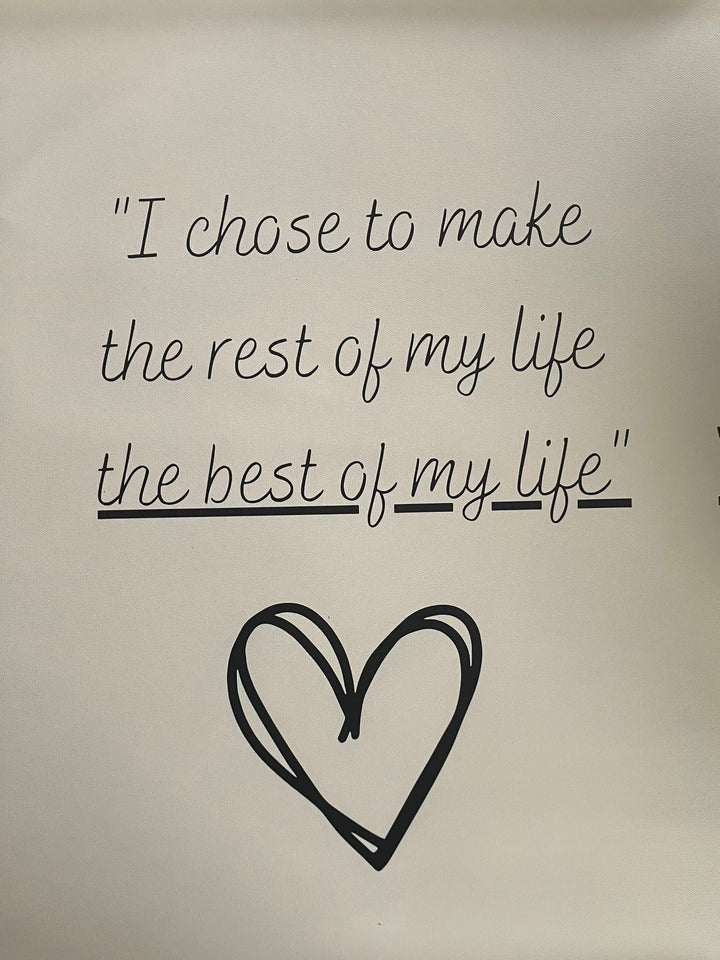 "I chose to make
the rest of my life
the best of my life"